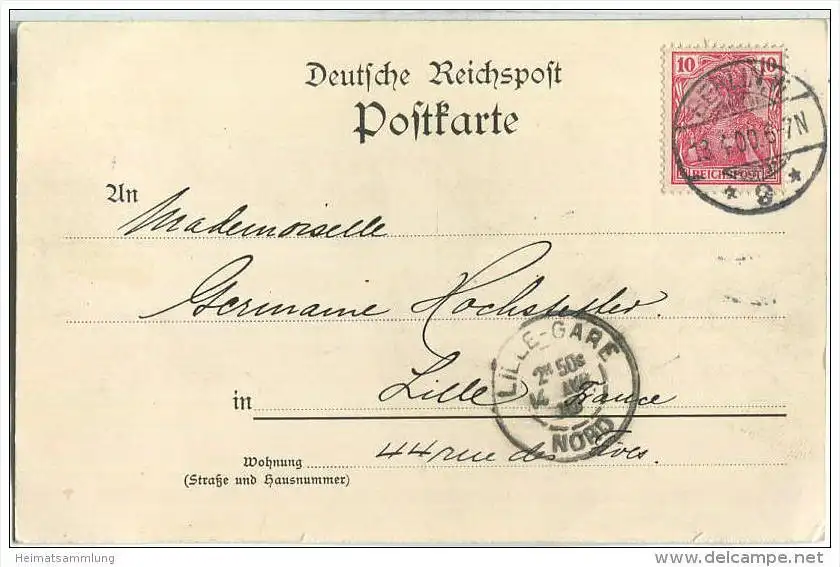 Deutsche Reichspost
Postkarte
10 10
REICHSPOST
BERLIN N
13.4.00.6-7N
* 8 *
An
Mademoiselle
Germaine Hochstetter.
in Lille France
LILLE-GARE
2E 50S
14 AVR
NORD
Wohnung 44 rue des
(Straße und Hausnummer)
Heimatsammlung
www.delcampe.net